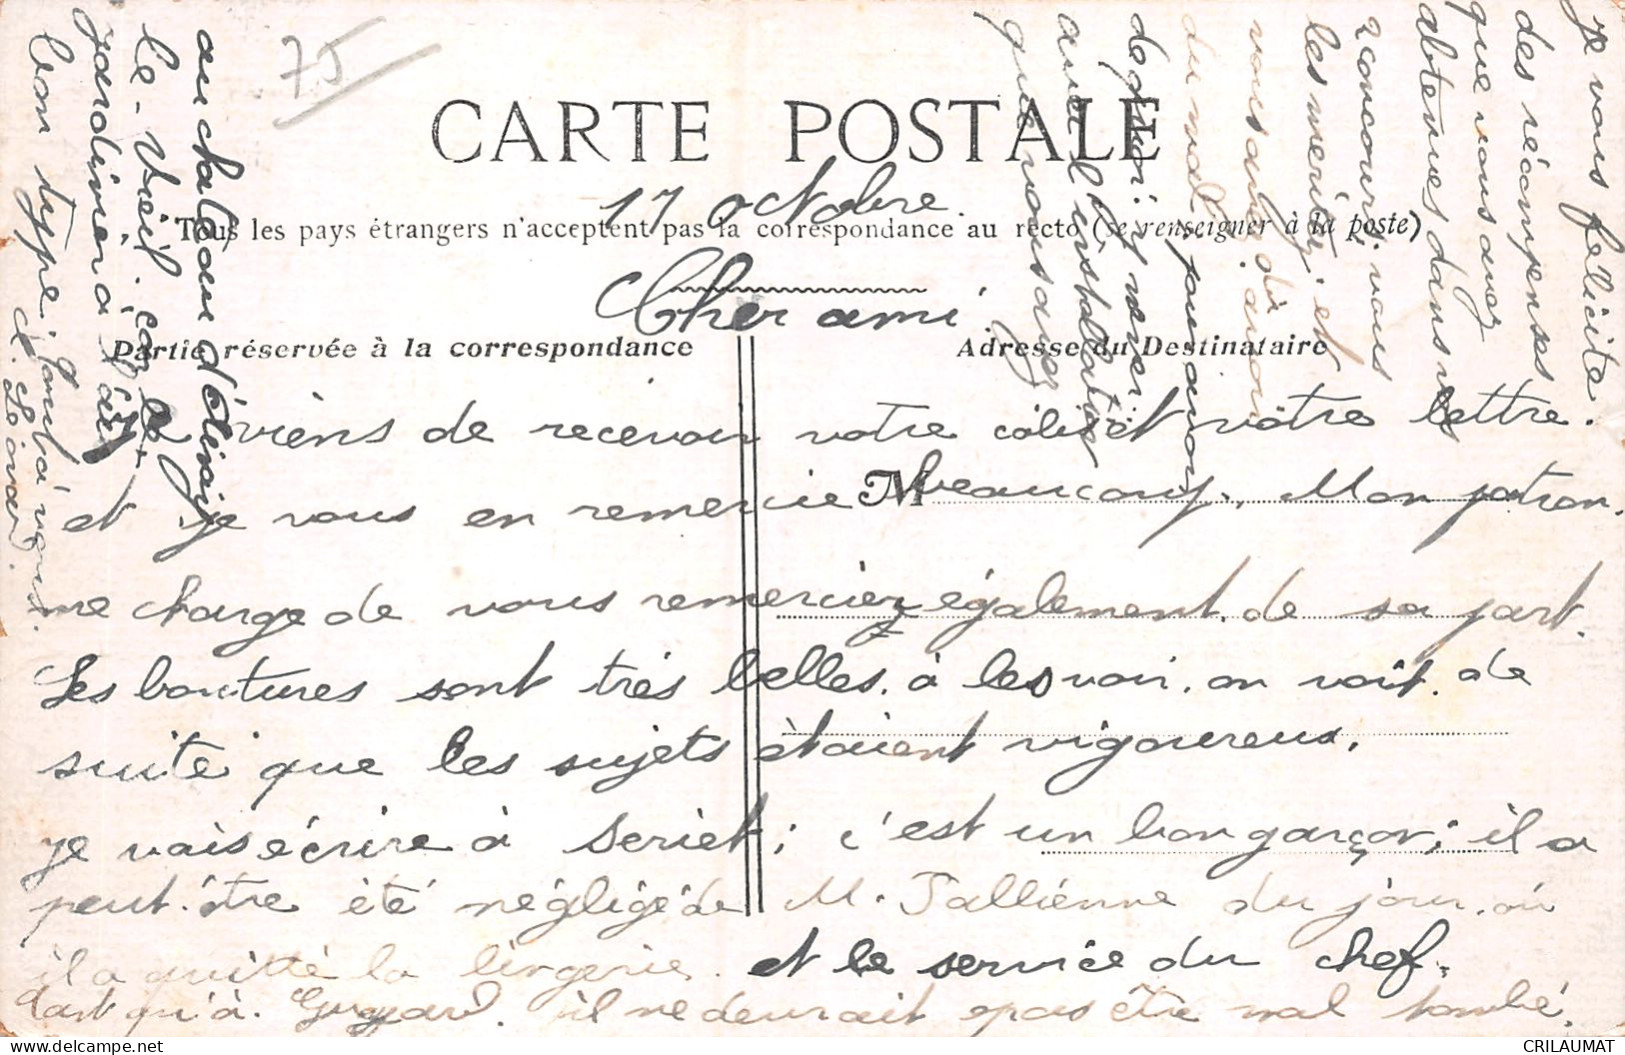 75
CARTE POSTALE
17 octobre.
Tous les pays étrangers n'acceptent pas la correspondance au recto (se renseigner à la poste)
Cher ami
Partie réservée à la correspondance
Adresse du Destinataire
M
Je viens de recevoir votre colis et votre lettre.
et je vous en remercie beaucoup. Mon patron.
me charge de vous remercier également. de sa part.
Les boutures sont très belles. à les voir. on voit. de
suite que les sujets étaient vigoureux.
je vais écrire à Seriet; c'est un bon garçon; il a
peut. être été négligé de M. Tallienne du jour. où
il a quitté la lingerie. et le service du chef.
tant qu'à. Guyard. il ne devrait pas être mal tombé.
au chateau d'
le-Vieil. c'est le
jardinier à
bon type; quant à vous.
je vous félicite.
des récompenses
que vous avez
obtenues dans les
concours. vous
les méritez. et
vous avez dû. avoir
du mal. pour avoir
de quoi. y mener
que vous avez
CRILAUMAT